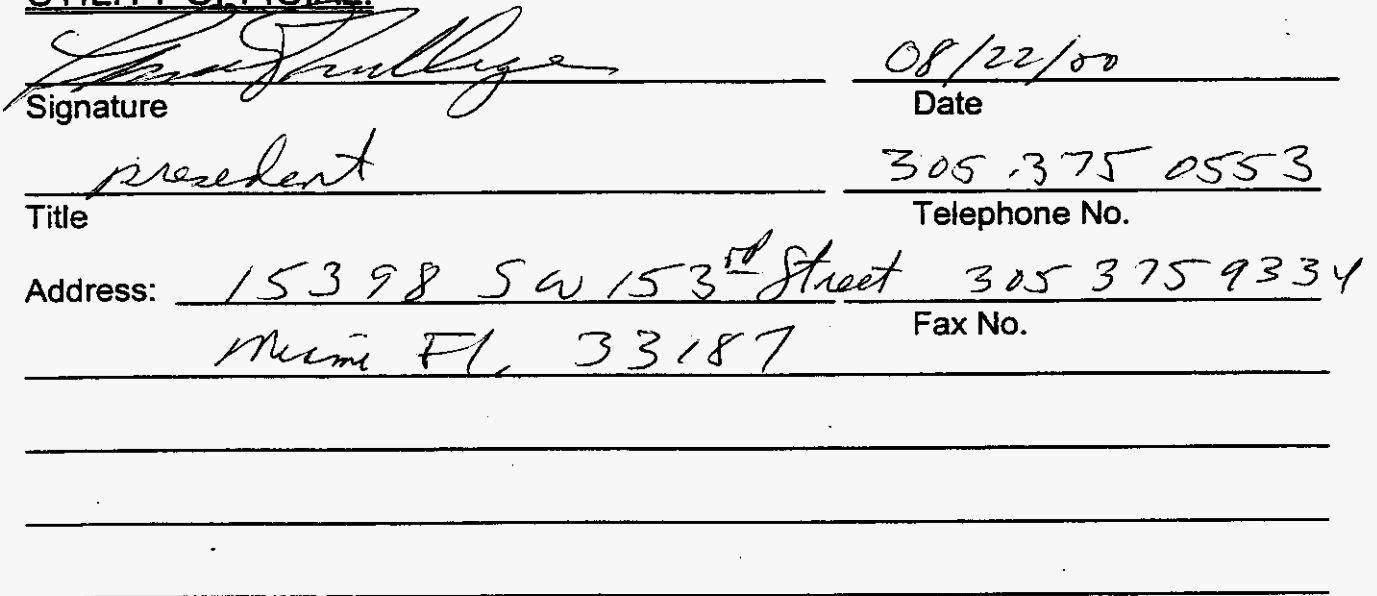 UTILITY OFFICIAL:
08/22/00
Signature Date
president 305.375 0553
Title Telephone No.
Address: 15398 SW 153rd Street 305 375 9334
Fax No.
Miami Fl, 33187